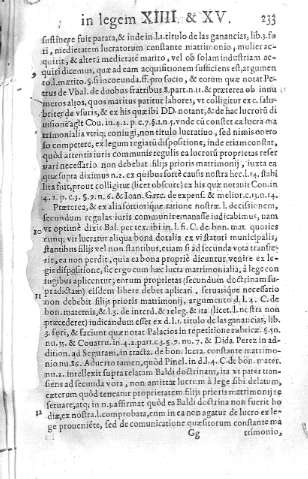 in legem XIIII & XV. 233
sustinere fuit parata, & inde in .l.1. titulo de las ganancias, lib.3. fo
ri, medietatem lucratorum constante matrimonio, mulier ac
quirit, & alterā medietatē marito, vel ob solam industriam ac-
quiri dicimus, quæ ad eam acquisitionem sufficiens est, argumen
to .l. si non fuerint. ff. pro socio, & eorum quæ notat Pe-
trus de Vbal. de duobus fratribus 8. part. n.11. & præterea ob innu
meros alios, quos maritus patitur labores, vt colligitur ex c. salu-
briter de vsuris, & ex his quæ ibi DD. notant, & de hac lucrorū di
uisione agit Con. in 4. 2. p. c. 7. §.1. n. 5. vnde cū constet ea lucra ma
trimonialia vtriq; coniugi, non titulo lucratiuo, sed nimis onero
so competere, ex legum regiarū dispositione, inde etiam constat,
quòd attentis iuris communis regulis ea lucrorū proprietas reser
uari necessario non debebat filijs prioris matrimonij, iuxta ea
quæ supra diximus n.2. ex quibus fortè casus nostræ hæc l.14. stabi
lita fuit, prout colligitur (licet obscurè) ex his quæ notauit Con. in
4. 2. p. c. 3. §. 9. n. 6. & Ioan. Garc. de expens. & melior. c. 13. n. 14.
Præterea, & ex alia fortiori quæ ratione nostræ l. decisionem,
secundum regulas iuris communis emanasse iudicabimus, nam
vt optimè dixit Bal. per tex. ibi in l. 6. C. de bon. mat. quoties
cunq; vir lucratur aliqua bona dotalia ex vi statuti municipalis,
stantibus filijs vel non stantibus, etiam si ad secunda vota transie-
rit, ea non perdit, quia ea bona propriè dicuntur venire ex le-
gis dispositione, sic ergo cùm hæc lucra matrimonialia, à lege con
iugibus aplicentur, eorum proprietas (secundum doctrinam su-
pradictam) eisdem liberè debet aplicari, seruarique necessario
non debebit filijs prioris matrimonij, argumento d. l. 4. C. de
bon. maternis, & l.3. de interd. & releg. & ita (licet l. nostra non
præcederet) iudicandum esset ex d. l.1. titulo de las ganancias, lib.
3. fori, & faciunt quæ notat Palacios in repetitione rubricæ §.50.
no. 15. & Couarru. in 4. 2. part. c. 3. §. 9. no. 7. & Dida. Perez in ad-
dition. ad Seguram, in tracta. de bon. lucra. constante matrimo-
nio nu. 25. Aduerto tamen, quòd Pinel. in d. l. 4. C. de bon. mater.
nu.2. intellexit supra relatam Baldi doctrinam, ita vt pater tran-
siens ad secunda vota, non amittat lucrum à lege sibi delatum,
cæterum quòd teneatur proprietatem filijs prioris matrimonij re
seruare, atq; in n.3. affirmat quòd ea Baldi doctrina non fuerit bo
32 dia, ex nostra l. comprobata, cum in ea non agatur de lucro ex le-
ge proueniēte, sed de comunicatione quæsitorum constante ma
Gg trimonio,